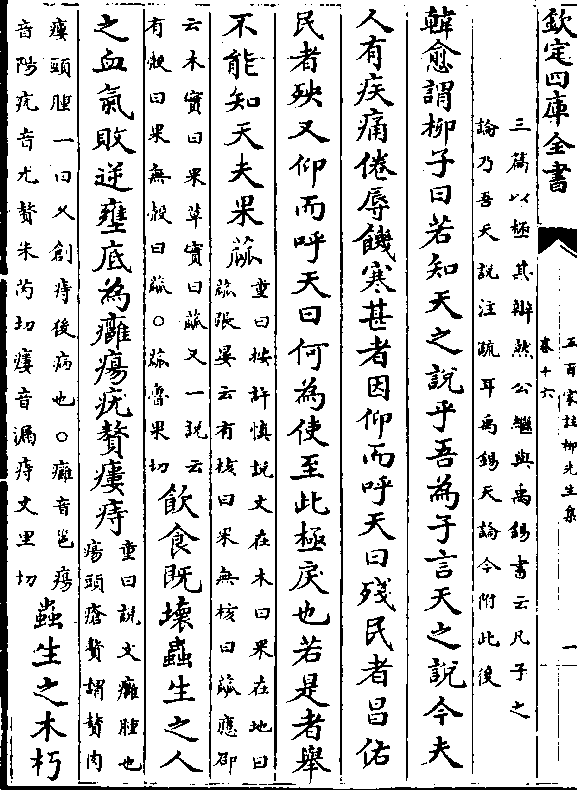 欽定四庫全書
五百家註柳先生集
卷十六
一
三篇以極其辯然公繼與禹錫書云凡子之
論乃吾天說注疏耳禹錫天論今附此後
韓愈謂柳子曰若知天之說乎吾為子言天之說今夫
人有疾痛倦辱饑寒甚者因仰而呼天曰殘民者昌佑
民者殃又仰而呼天曰何為使至此極戾也若是者舉
不能知天夫果蓏
童曰按許慎說文在木曰果在地曰
蓏張晏云有核曰果無核曰蓏應邵
云木實曰果草實曰蓏又一說云
有殻曰果無殻曰蓏○蓏魯果切
飲食既壞蟲生之人
之血氣敗逆壅底為癰瘍疣贅瘻痔
童曰說文癰腫也
瘍頭瘡贅謂贅肉
瘻頭腫一曰久創痔後病也○癰音邕瘍
音陽疣音尤贅朱芮切瘻音漏痔丈里切
蟲生之木朽